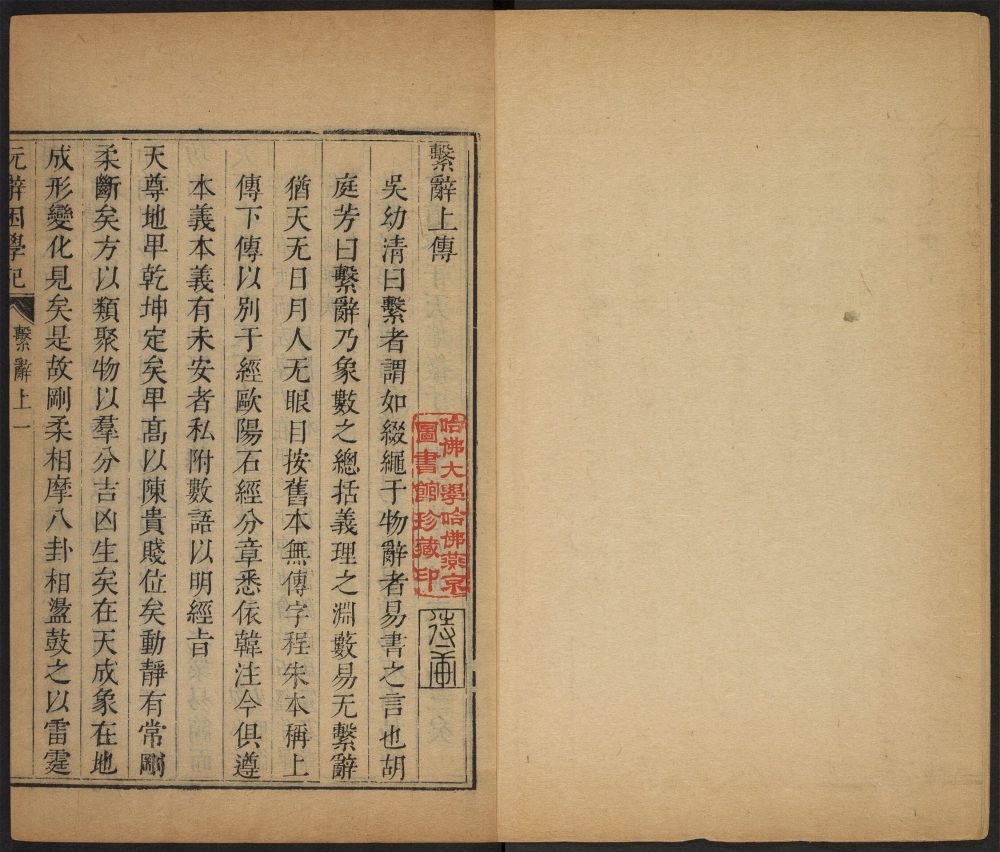 繫辭上傳
吳幼清曰繫者謂如綴繩于物辭者易書之言也胡
庭芳曰繫辭乃象數之總括義理之淵藪易无繫辭
猶天无日月人无眼目按舊本無傳字程朱本稱上
傳下傳以別于經歐陽石經分章悉依韓注今俱遵
本義本義有未安者私附數語以明經旨
天尊地卑乾坤定矣卑髙以陳貴賤位矣動靜有常剛
柔斷矣方以類聚物以羣分吉凶生矣在天成象在地
成形變化見矣是故剛柔相摩八卦相盪鼓之以雷霆
繫辭上 一
哈佛大學哈佛燕京
圖書館珍藏印